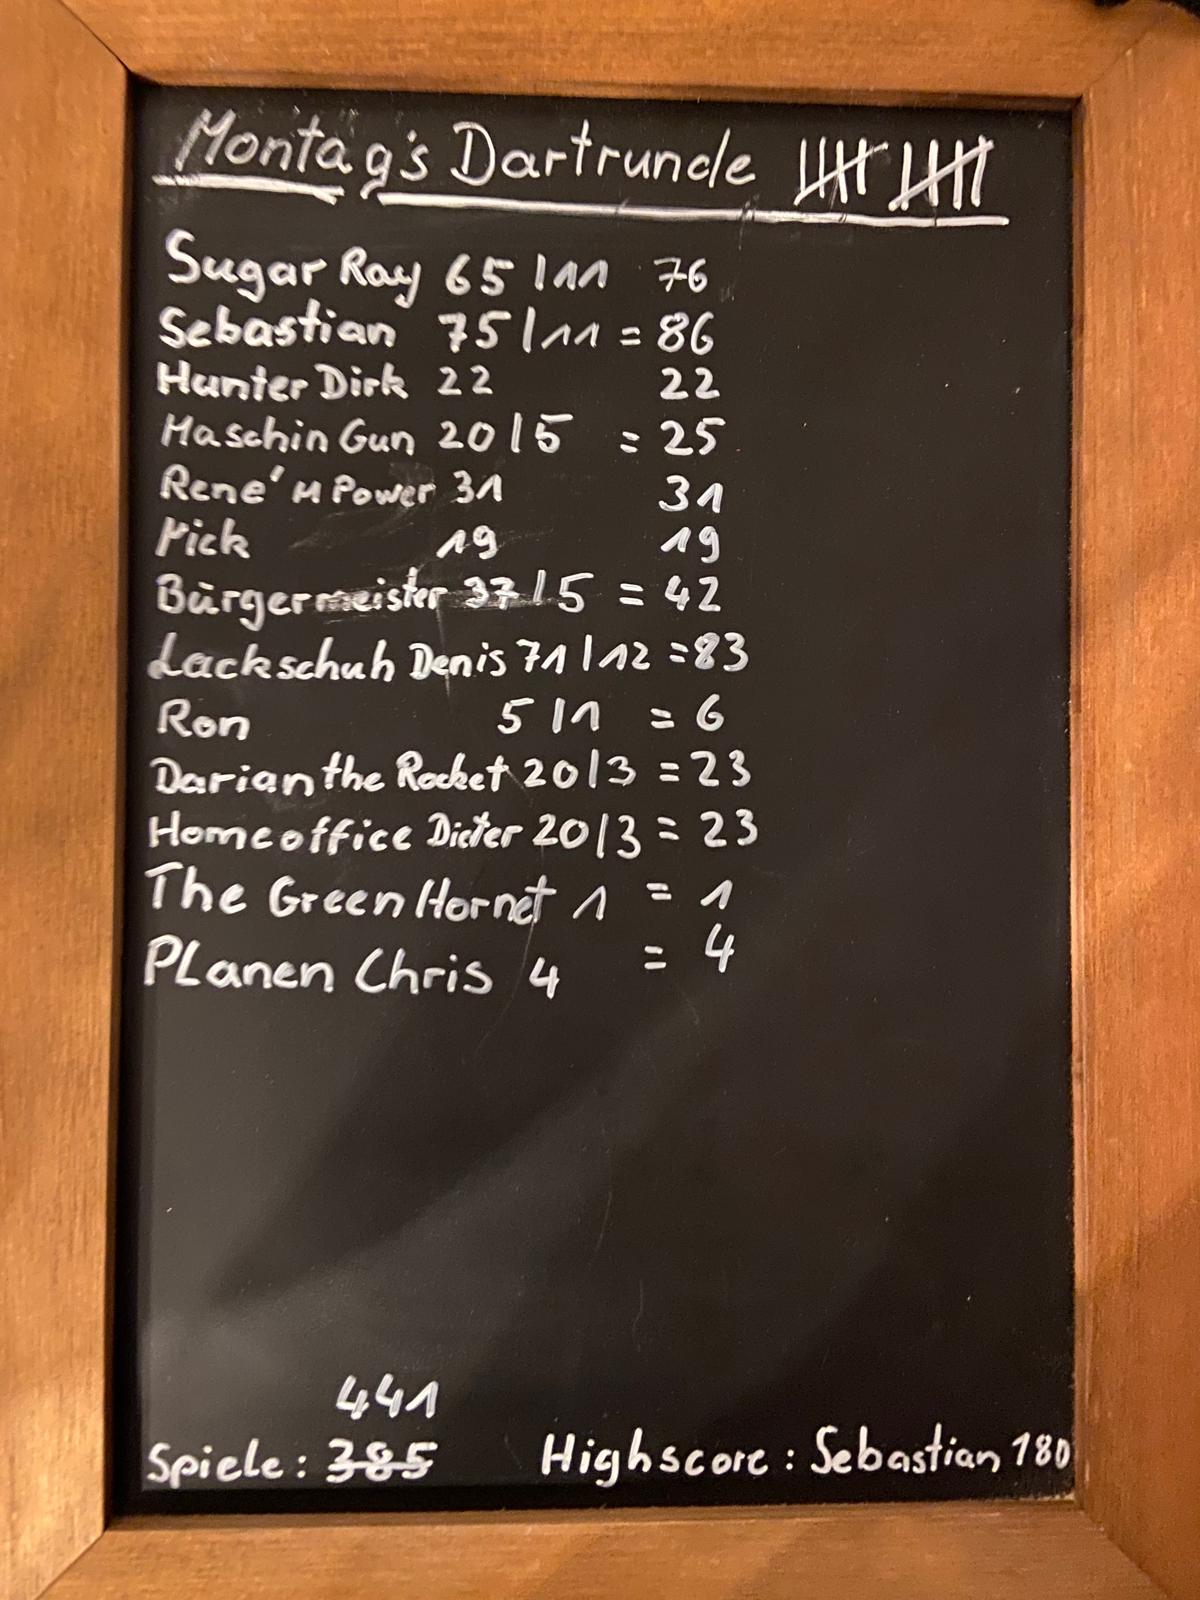 Montag's Dartrunde
Sugar Ray 65 | 11 76
Sebastian 75 | 11 = 86
Hunter Dirk 22 22
Maschin Gun 20 | 5 = 25
René' M Power 31 31
Mick 19 19
Bürgermeister 37 | 5 = 42
Lackschuh Denis 71 | 12 = 83
Ron 5 | 1 = 6
Darian the Rocket 20 | 3 = 23
Homeoffice Dieter 20 | 3 = 23
The Green Hornet 1 = 1
PLanen Chris 4 = 4
441
Spiele: 385 Highscore: Sebastian 180